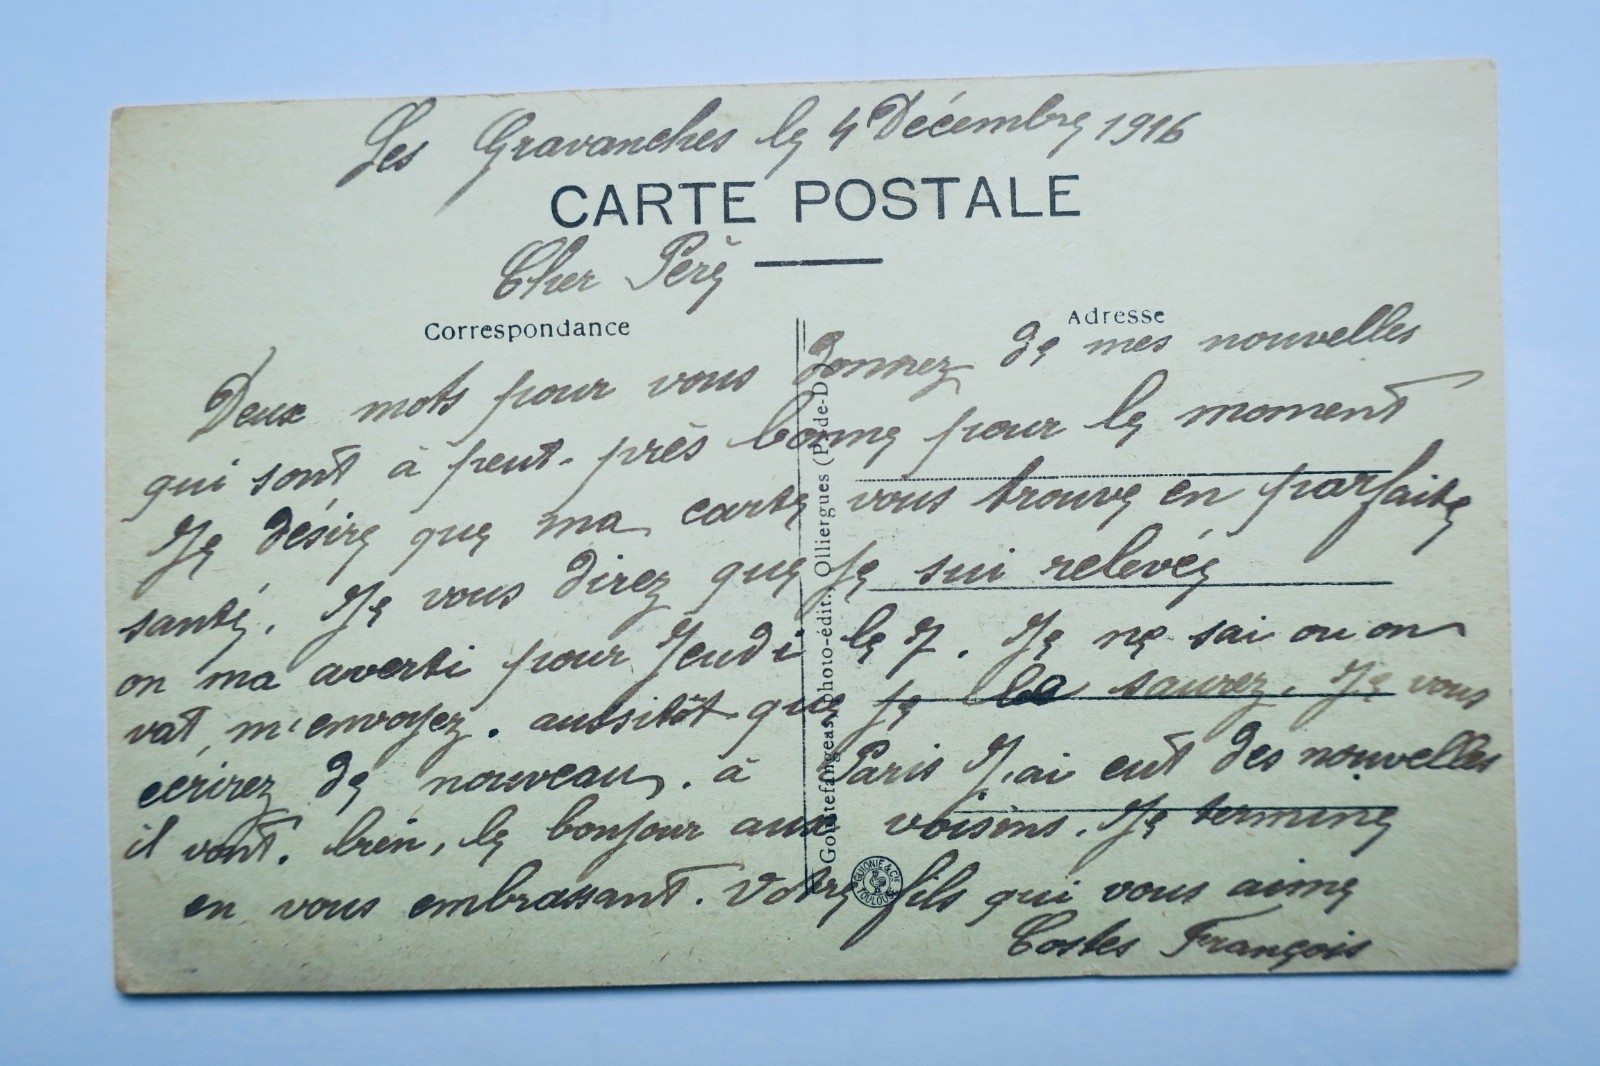 Les Gravanches le 4 Décembre 1916
CARTE POSTALE
Cher Père
Correspondance
Adresse
Deux mots pour vous donnrez de mes nouvelles
qui sont à peut-près bonne pour le moment
Je désire que ma carte vous trouve en parfaite
santé. Je vous direz que je sui relevée
on ma averti pour Jeudi le 7. Je ne sai ou on
vat m'envoyez. aussitôt que je la saurez. Je vous
ecrirez de nouveau. à Paris J'ai eut des nouvelles
il vont. bien, le bonjour aux voisins. Je termine
en vous embrassant. Votre fils qui vous aime
Costes François
Gouttefangeas, photo-édit., Olliergues (P.-de-D
GUIONIE & Cie TOULOUSE